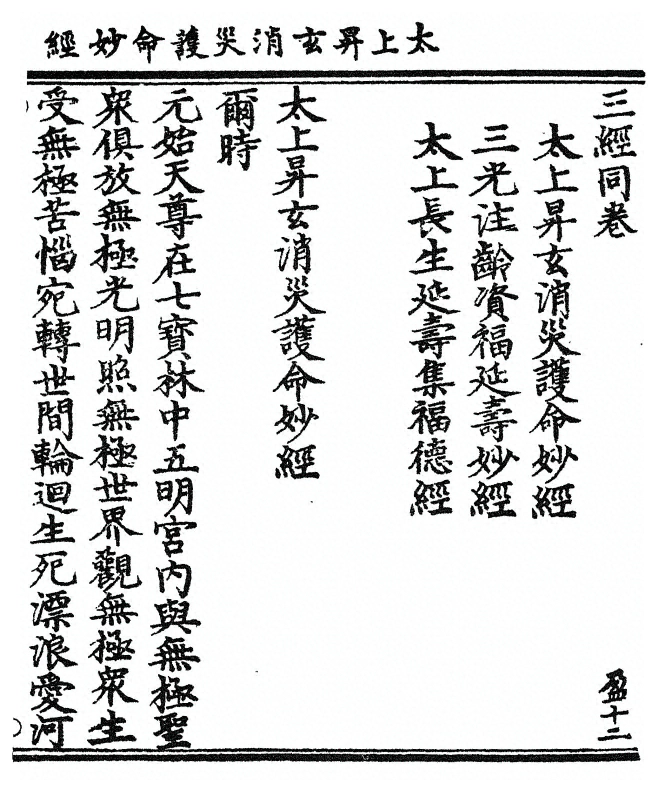 太上昇玄消災護命妙經
三經同卷
盈十二
太上昇玄消災護命妙經
三光注齡資福延壽妙經
太上長生延壽集福德經
太上昇玄消災護命妙經
爾時
元始天尊在七寶林中五明宮內與無極聖
衆俱放無極光明照無極世界觀無極衆生
受無極苦惱宛轉世間輪迴生死漂浪愛河